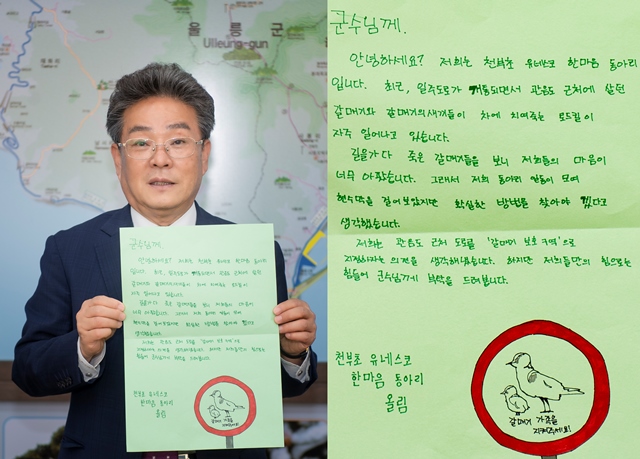 울릉군
Ulleung-gun
군수님께.
안녕하세요? 저희는 천부초 유네스코 한마음 동아리
입니다. 최근, 일주도로가 개통되면서 관음도 근처에 살던
갈매기와 갈매기의새끼들이 차에 치여죽는 로드킬이
자주 일어나고 있습니다.
길을가다 죽은 갈매기들을 보니 저희들의 마음이
너무 아팠습니다. 그래서 저희 동아리 일동이 모여
현수막을 걸어 보았지만 확실한 방법을 찾아야 겠다고
생각했습니다.
저희는 관음도 근처 도로를 '갈매기 보호 구역'으로
지정하자는 의견을 생각해냈습니다. 하지만 저희들만의 힘으로는
힘들어 군수님께 부탁을 드려봅니다.
천부초 유네스코
한마음 동아리
올림
갈매기 가족을
지켜주세요!